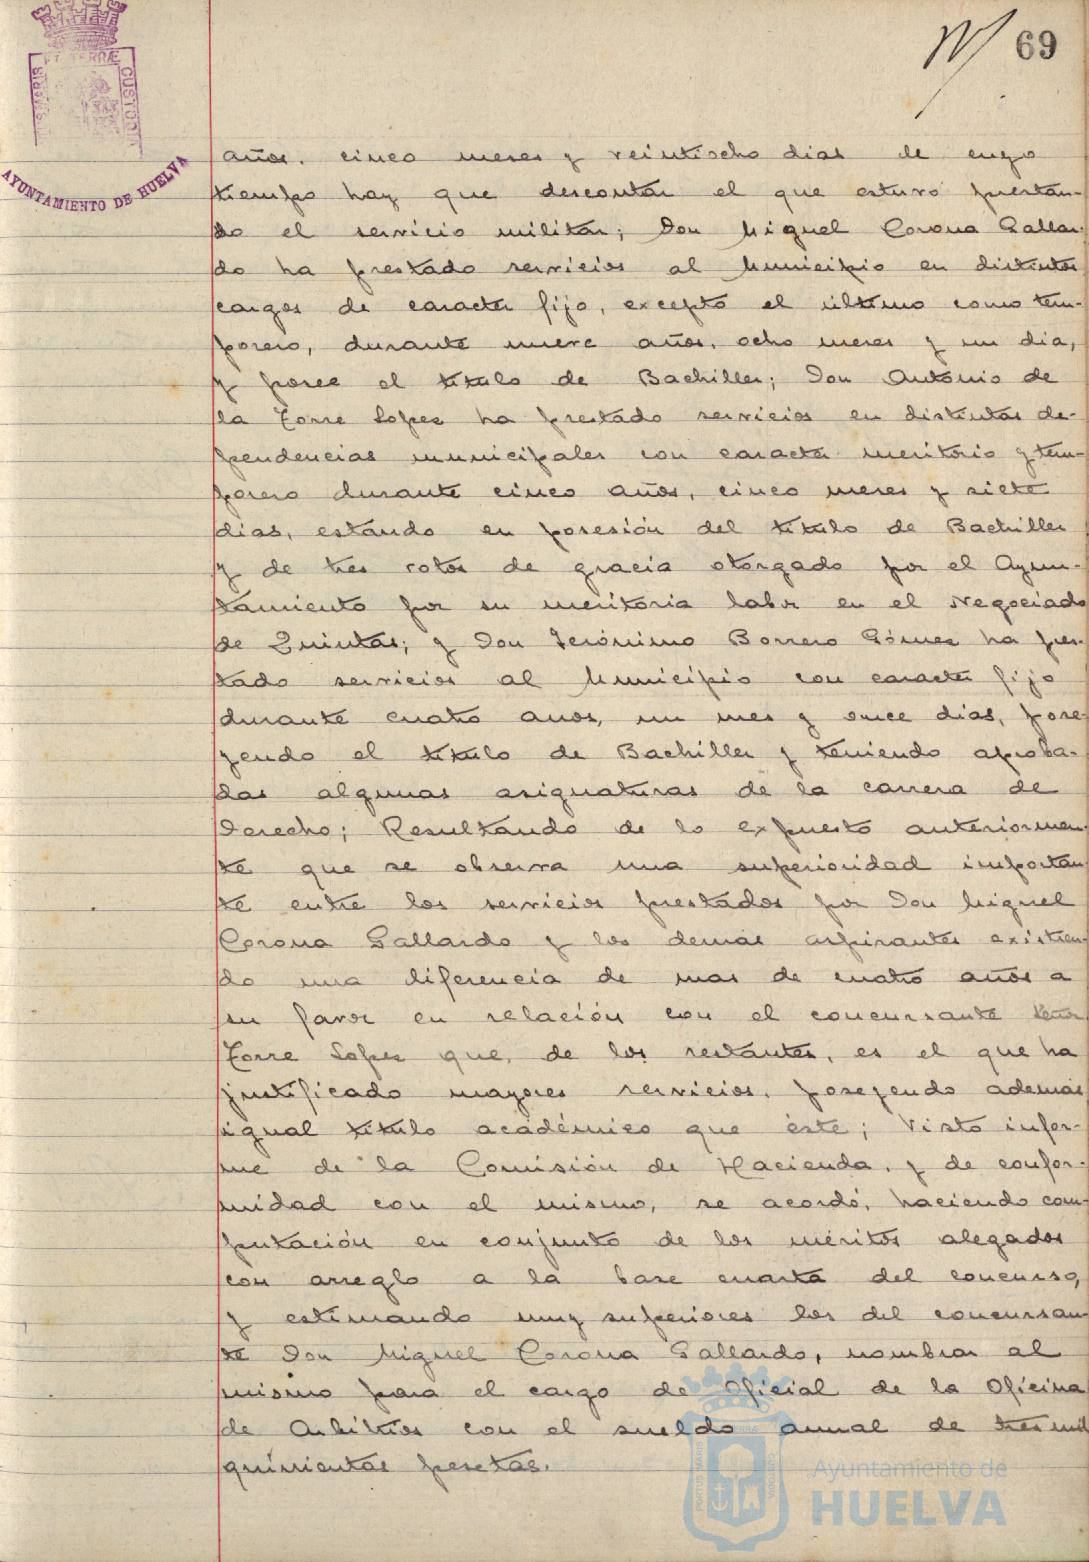 69
PORTUS MARIS ET TERRÆ CUSTODIA
AYUNTAMIENTO DE HUELVA
años, cinco meses y veintiocho dias de cuyo
tiempo hay que descontar el que estuvo prestan-
do el servicio militar; Don Miguel Corona Gallar-
do ha prestado servicios al Municipio en distintos
cargos de caracter fijo, excepto el último como tem-
porero, durante nueve años, ocho meses y un dia,
y posee el titulo de Bachiller; Don Antonio de
la Torre Lopez ha prestado servicios en distintas de-
pendencias municipales con caracter meritorio y tem-
porero durante cinco años, cinco meses y siete
dias, estando en posesión del titulo de Bachiller
y de tres votos de gracia otorgado por el Ayun-
tamiento por su meritoria labor en el Negociado
de Quintas; y Don Jerónimo Borrero Gómez ha pres-
tado servicios al Municipio con caracter fijo
durante cuatro anos, un mes y once dias, pose-
yendo el titulo de Bachiller y teniendo aproba-
das algunas asignaturas de la carrera de
Derecho; Resultando de lo expuesto anteriormen-
te que se observa una superioridad importan-
te entre los servicios prestados por Don Miguel
Corona Gallardo y los demás aspirantes existien-
do una diferencia de mas de cuatro años a
su favor en relación con el concursante Señor
Torre Lopez que, de los restantes, es el que ha
justificado mayores servicios, poseyendo además
igual titulo académico que éste; Visto infor-
me de la Comisión de Hacienda, y de confor-
midad con el mismo, se acordó, haciendo com-
putación en conjunto de los méritos alegados
con arreglo a la base cuarta del concurso,
y estimando muy superiores los del concursan-
te Don Miguel Corona Gallardo, nombrar al
mismo para el cargo de Oficial de la Oficina
de Arbitrios con el sueldo anual de tres mil
quinientas pesetas.
Ayuntamiento de
HUELVA